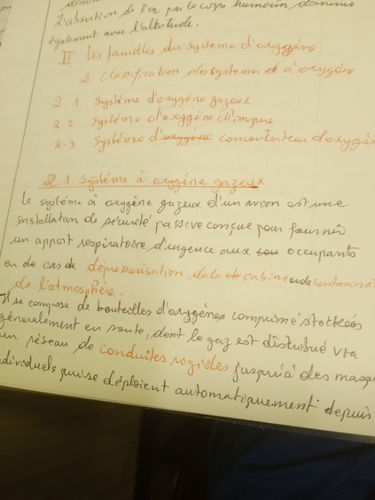 L'absorption de l'O2 par le corps humain diminue
également avec l'altitude.
II les familles du système d'oxygène
2 classification des systèmes à oxygène
2.1 système d'oxygène gazeux
2.2 système d'oxygène chimique
2.3 système d'oxygène concentrateur d'oxygè
2.1 système à oxygène gazeux
Le système à oxygène gazeux d'un avion est une
installation de sécurité passive conçue pour fournir
un apport respiratoire d'urgence aux occupants
en de cas de dépressurisation de la cabine ou de contamina
de l'atmosphère.
Il se compose de bouteilles d'oxygènes comprimé stockées
généralement en soute, dont le gaz est distribué via
un réseau de conduites rigides jusqu'à des masq
individuels qui se déploient automatiquement depuis